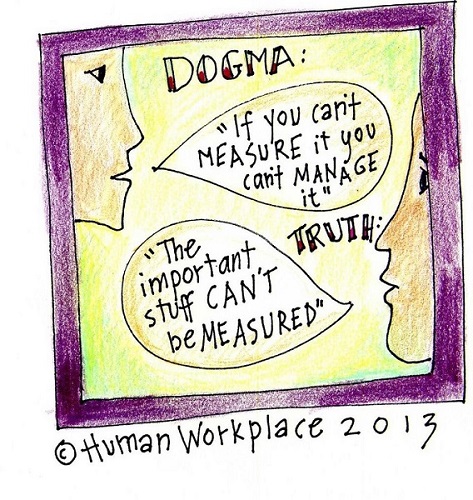 DOGMA:
"If you can't
MEASURE it you
can't MANAGE
it"
TRUTH:
"The
important
stuff CAN'T
be MEASURED"
© Human Workplace 2013